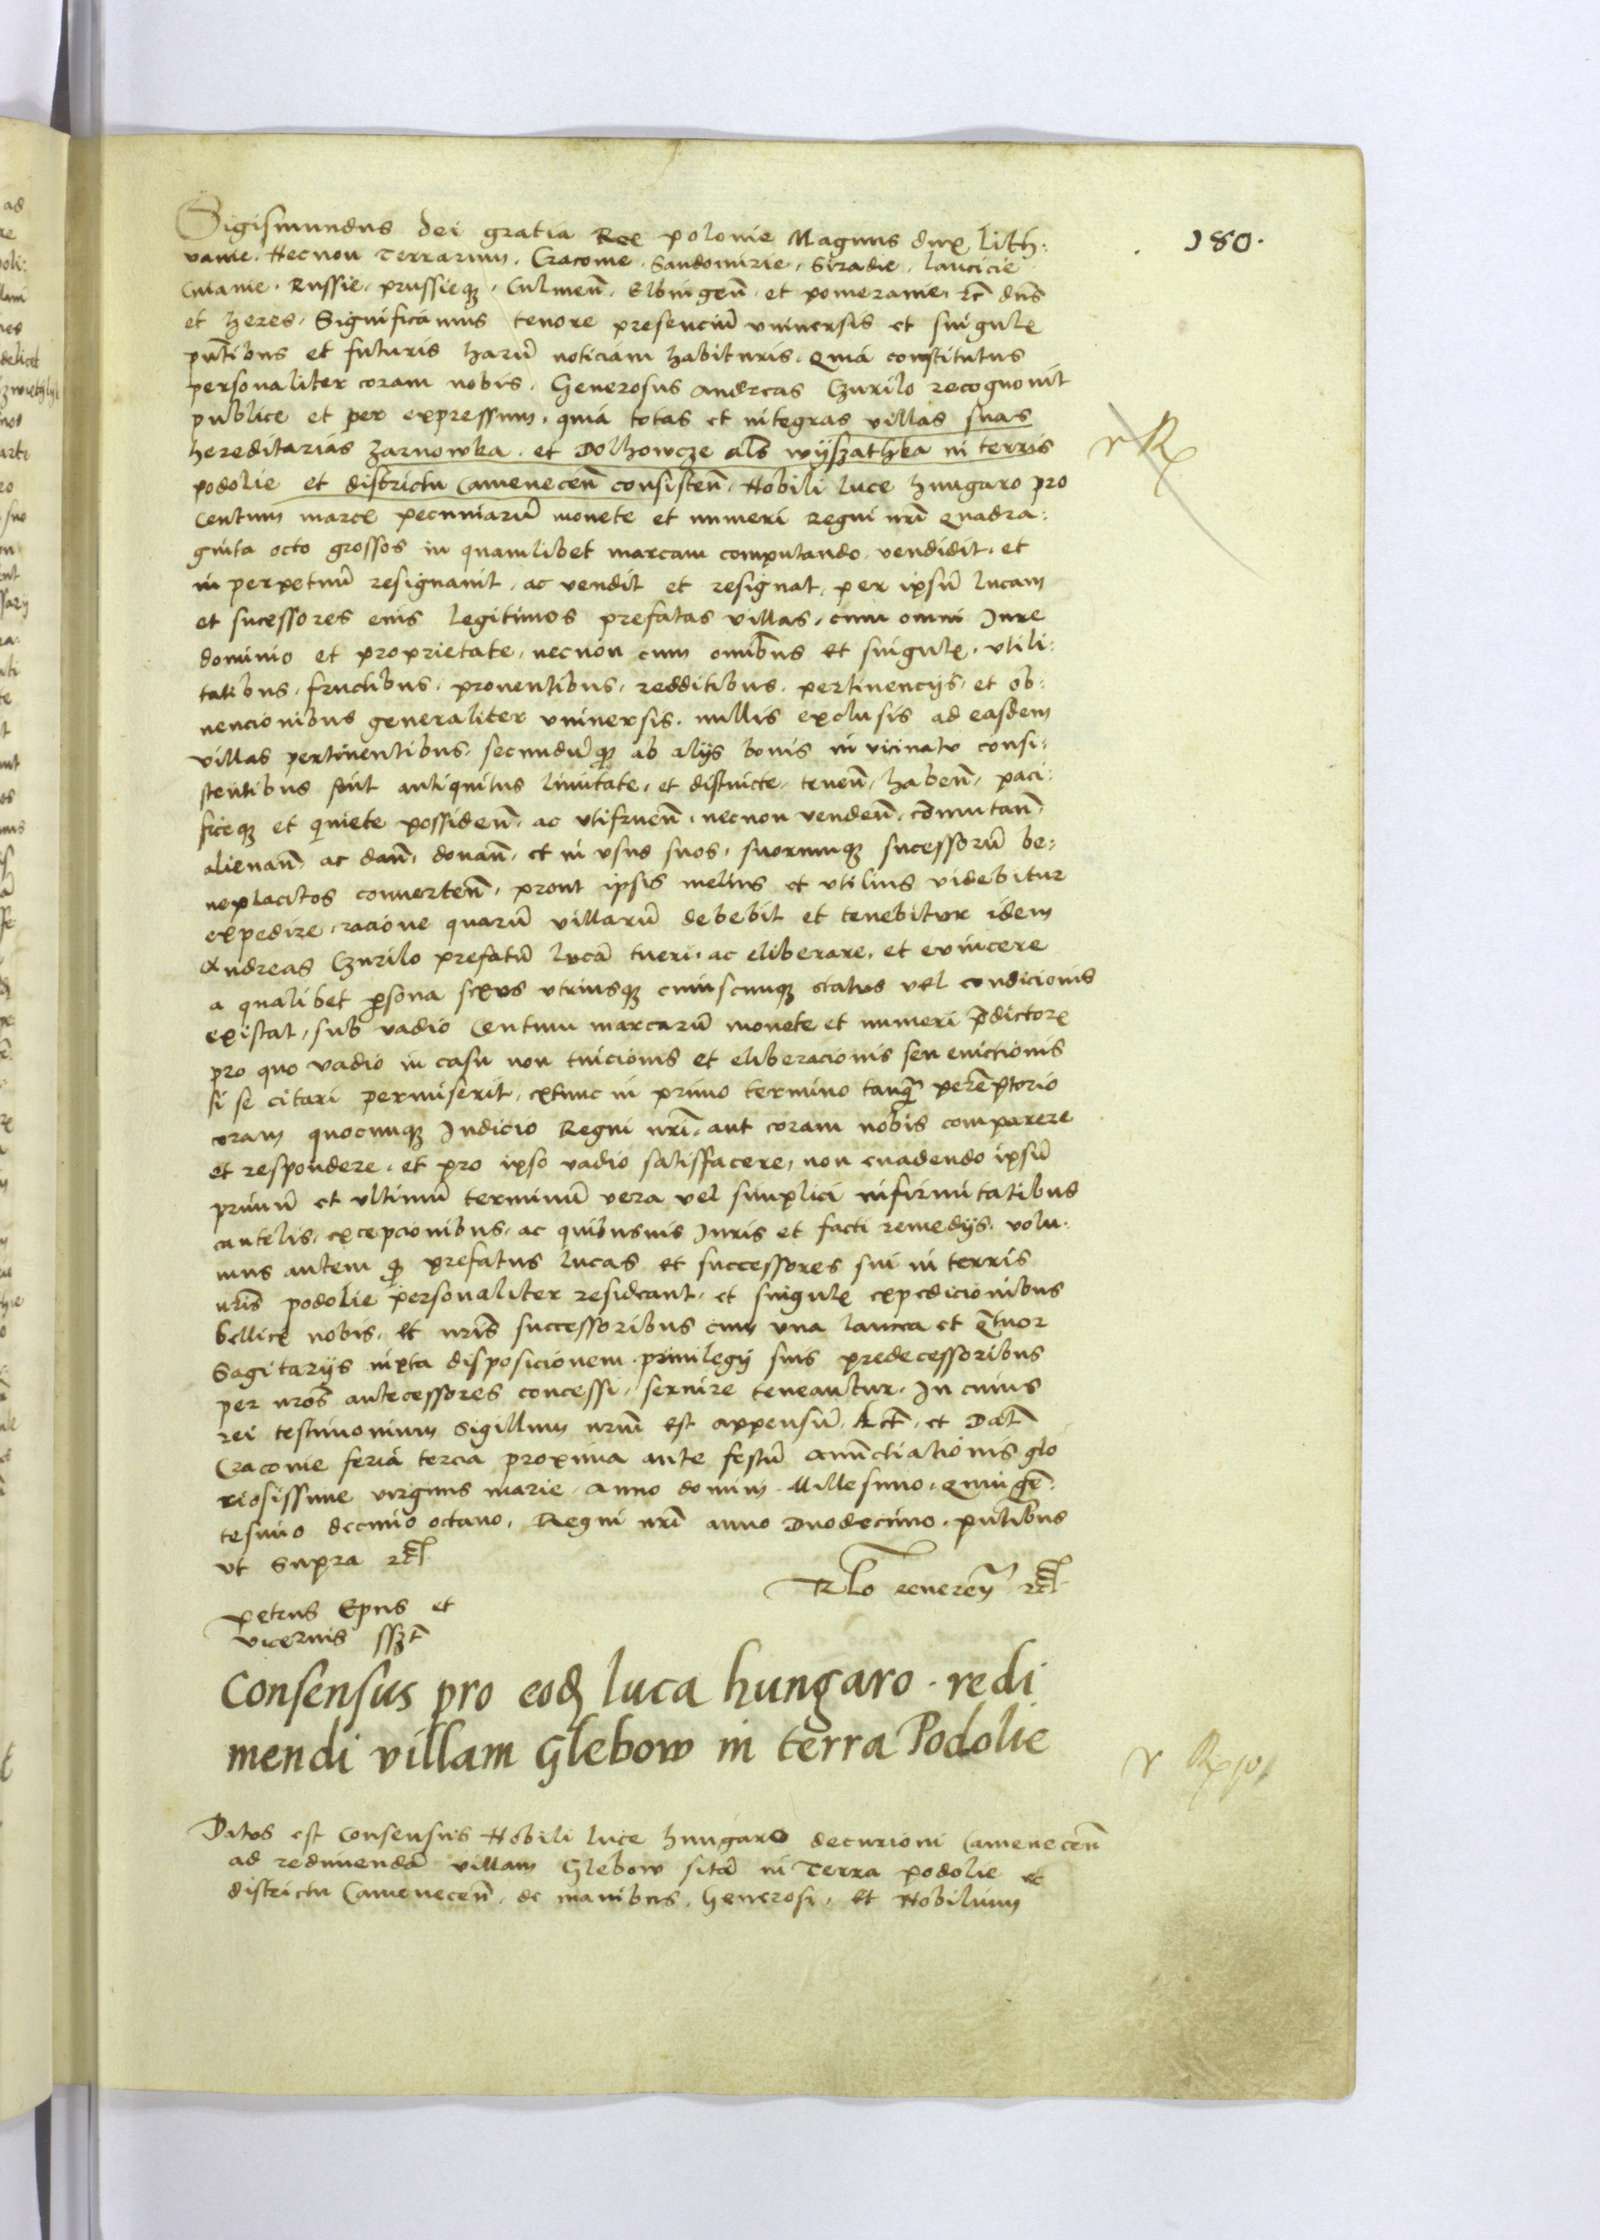 180.
Sigismundus dei gratia Rex polonie Magnus dux lith:
vanie. Necnon Terrarum. Cracovie. Sandomirie. Siradie. lancicie
Cuiavie. Russie. prussieq₃. Culmeñ. Elbingeñ. et pomeranie. zc̃ dñs
et heres. Significamus tenore presenciũ universis et singulꝝ
pñtibus et futuris harũ noticiam habituris. Quia constitutus
personaliter coram nobis. Generosus Andreas Czurilo recognovit
publice et per expressum. quia totas et integras villas suas
hereditarias Zarnowka. et Dolhowcze als̃ wijszathka in terris
podolie et districtu Cameneceñ consisteñ. Nobili luce hungaro pro
Centum marcꝝ pecuniarũ monete et numeri Regni nrĩ Quadra:
ginta octo grossos in quamlibet marcam computando. vendidit. et
in perpetuũ resignavit. ac vendit et resignat. per ipsũ lucam
et sucessores eius legitimos prefatas villas. cum omni Iure
dominio et proprietate. necnon cum omĩbus et singulꝝ. utili:
tatibus. fructibus. proventibus. redditibus. pertinencijs. et ob:
vencionibus generaliter universis. nullis exclusis ad easdem
villas pertinentibus. secundũ q₃ ab alijs bonis in vicinatu consi:
stentibus sunt antiquitus limitate. et distincte. teneñ. habeñ. paci:
ficeq₃ et quiete possideñ. ac utifrueñ. necnon vendeñ. comutañ.
alienañ. ac dañ. donañ. et in usus suos. suorumq₃ sucessorũ be:
neplacitos converteñ. prout ipsis melius et utilius videbitur
expedire. racione quarũ villarũ debebit et tenebitur idem
Andreas Czurilo prefatũ lucã tueri. ac eliberare. et evincere
a qualibet psona sexus utriusq₃ cuiuscumq₃ status vel condicionis
existat. sub vadio Centum marcarũ monete et numeri p̃dictorꝝ
pro quo vadio in casu non tuicionis et eliberacionis seu evictionis
si se citari permiserit. extunc in primo termino tanq̃ perẽptorio
coram quocumq₃ Iudicio Regni nrĩ. aut coram nobis comparere
et respondere. et pro ipso vadio satisfacere. non evadendo ipsũ
primũ et ultimũ terminũ vera vel simplici infirmitatibus
cautelis. excepcionibus. ac quibusvis Iuris et facti remedijs. volu:
mus autem q₃ prefatus lucas et successores sui in terris
nrĩs podolie personaliter resideant. et singulꝝ expedicionibus
bellicꝝ nobis. et nrĩs successoribus cum una lancea et q̃tuor
Sagitarijs iuxta disposicionem privilegij suis predecessoribus
per nrõs antecessores concessi. servire teneantur. In cuius
rei testimonium Sigillum nrũm est appensũ. Act̃. et Dat̃
Cracovie feria tercia proxima ante festũ Anũctiationis glo
riosissime virginis marie. Anno domini. Millesimo. Quingẽ:
tesimo decimo octavo. Regni nrĩ anno Duodecimo. pñtibus
ut Supra zc̃
Rlo reverenᵈⁱ zc̃
Petrus Epus et
vicecanc̃ sszt
Consensus pro eodꝫ luca hungaro. redi
mendi villam Glebow in terra Podolie
Datus est Consensus Nobili luce hungaro decurioni Cameneceñ
ad redimendã villam Glebow sitã in Terra podolie et
districtu Cameneceñ. de manibus. Generosi. et Nobilium